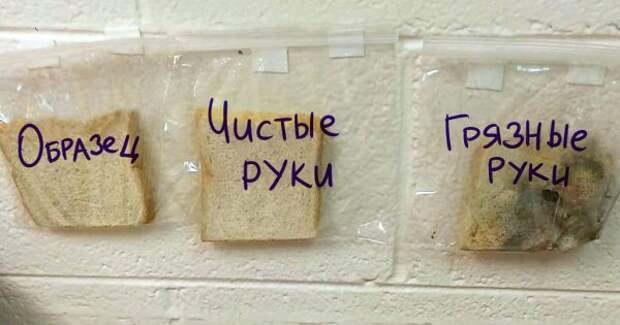 Образец
Чистые
руки
Грязные
руки